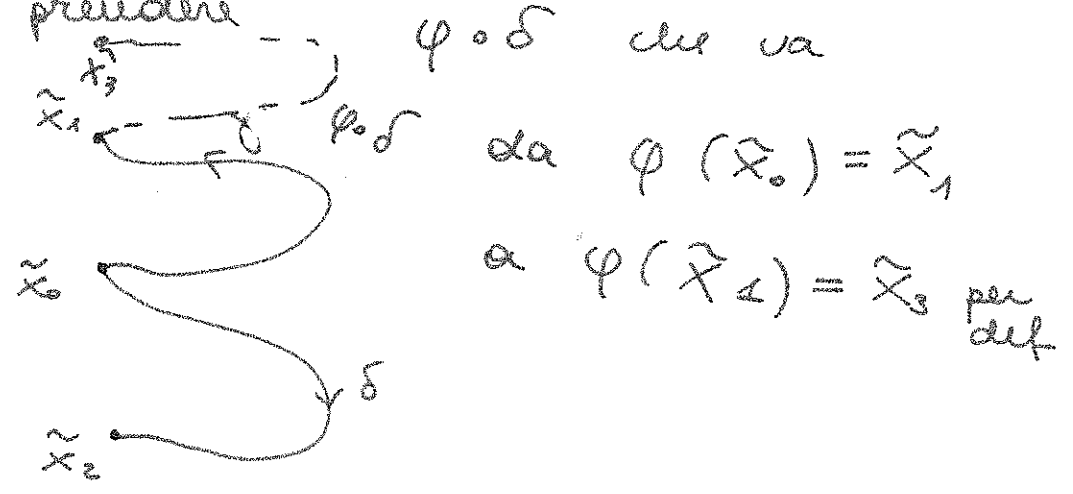 prendere
φ∘δ che va
x̃₃
x̃₁
φ∘δ
da φ(x̃₀) = x̃₁
x̃₀
a φ(x̃₁) = x̃₃ per def
δ
x̃₂